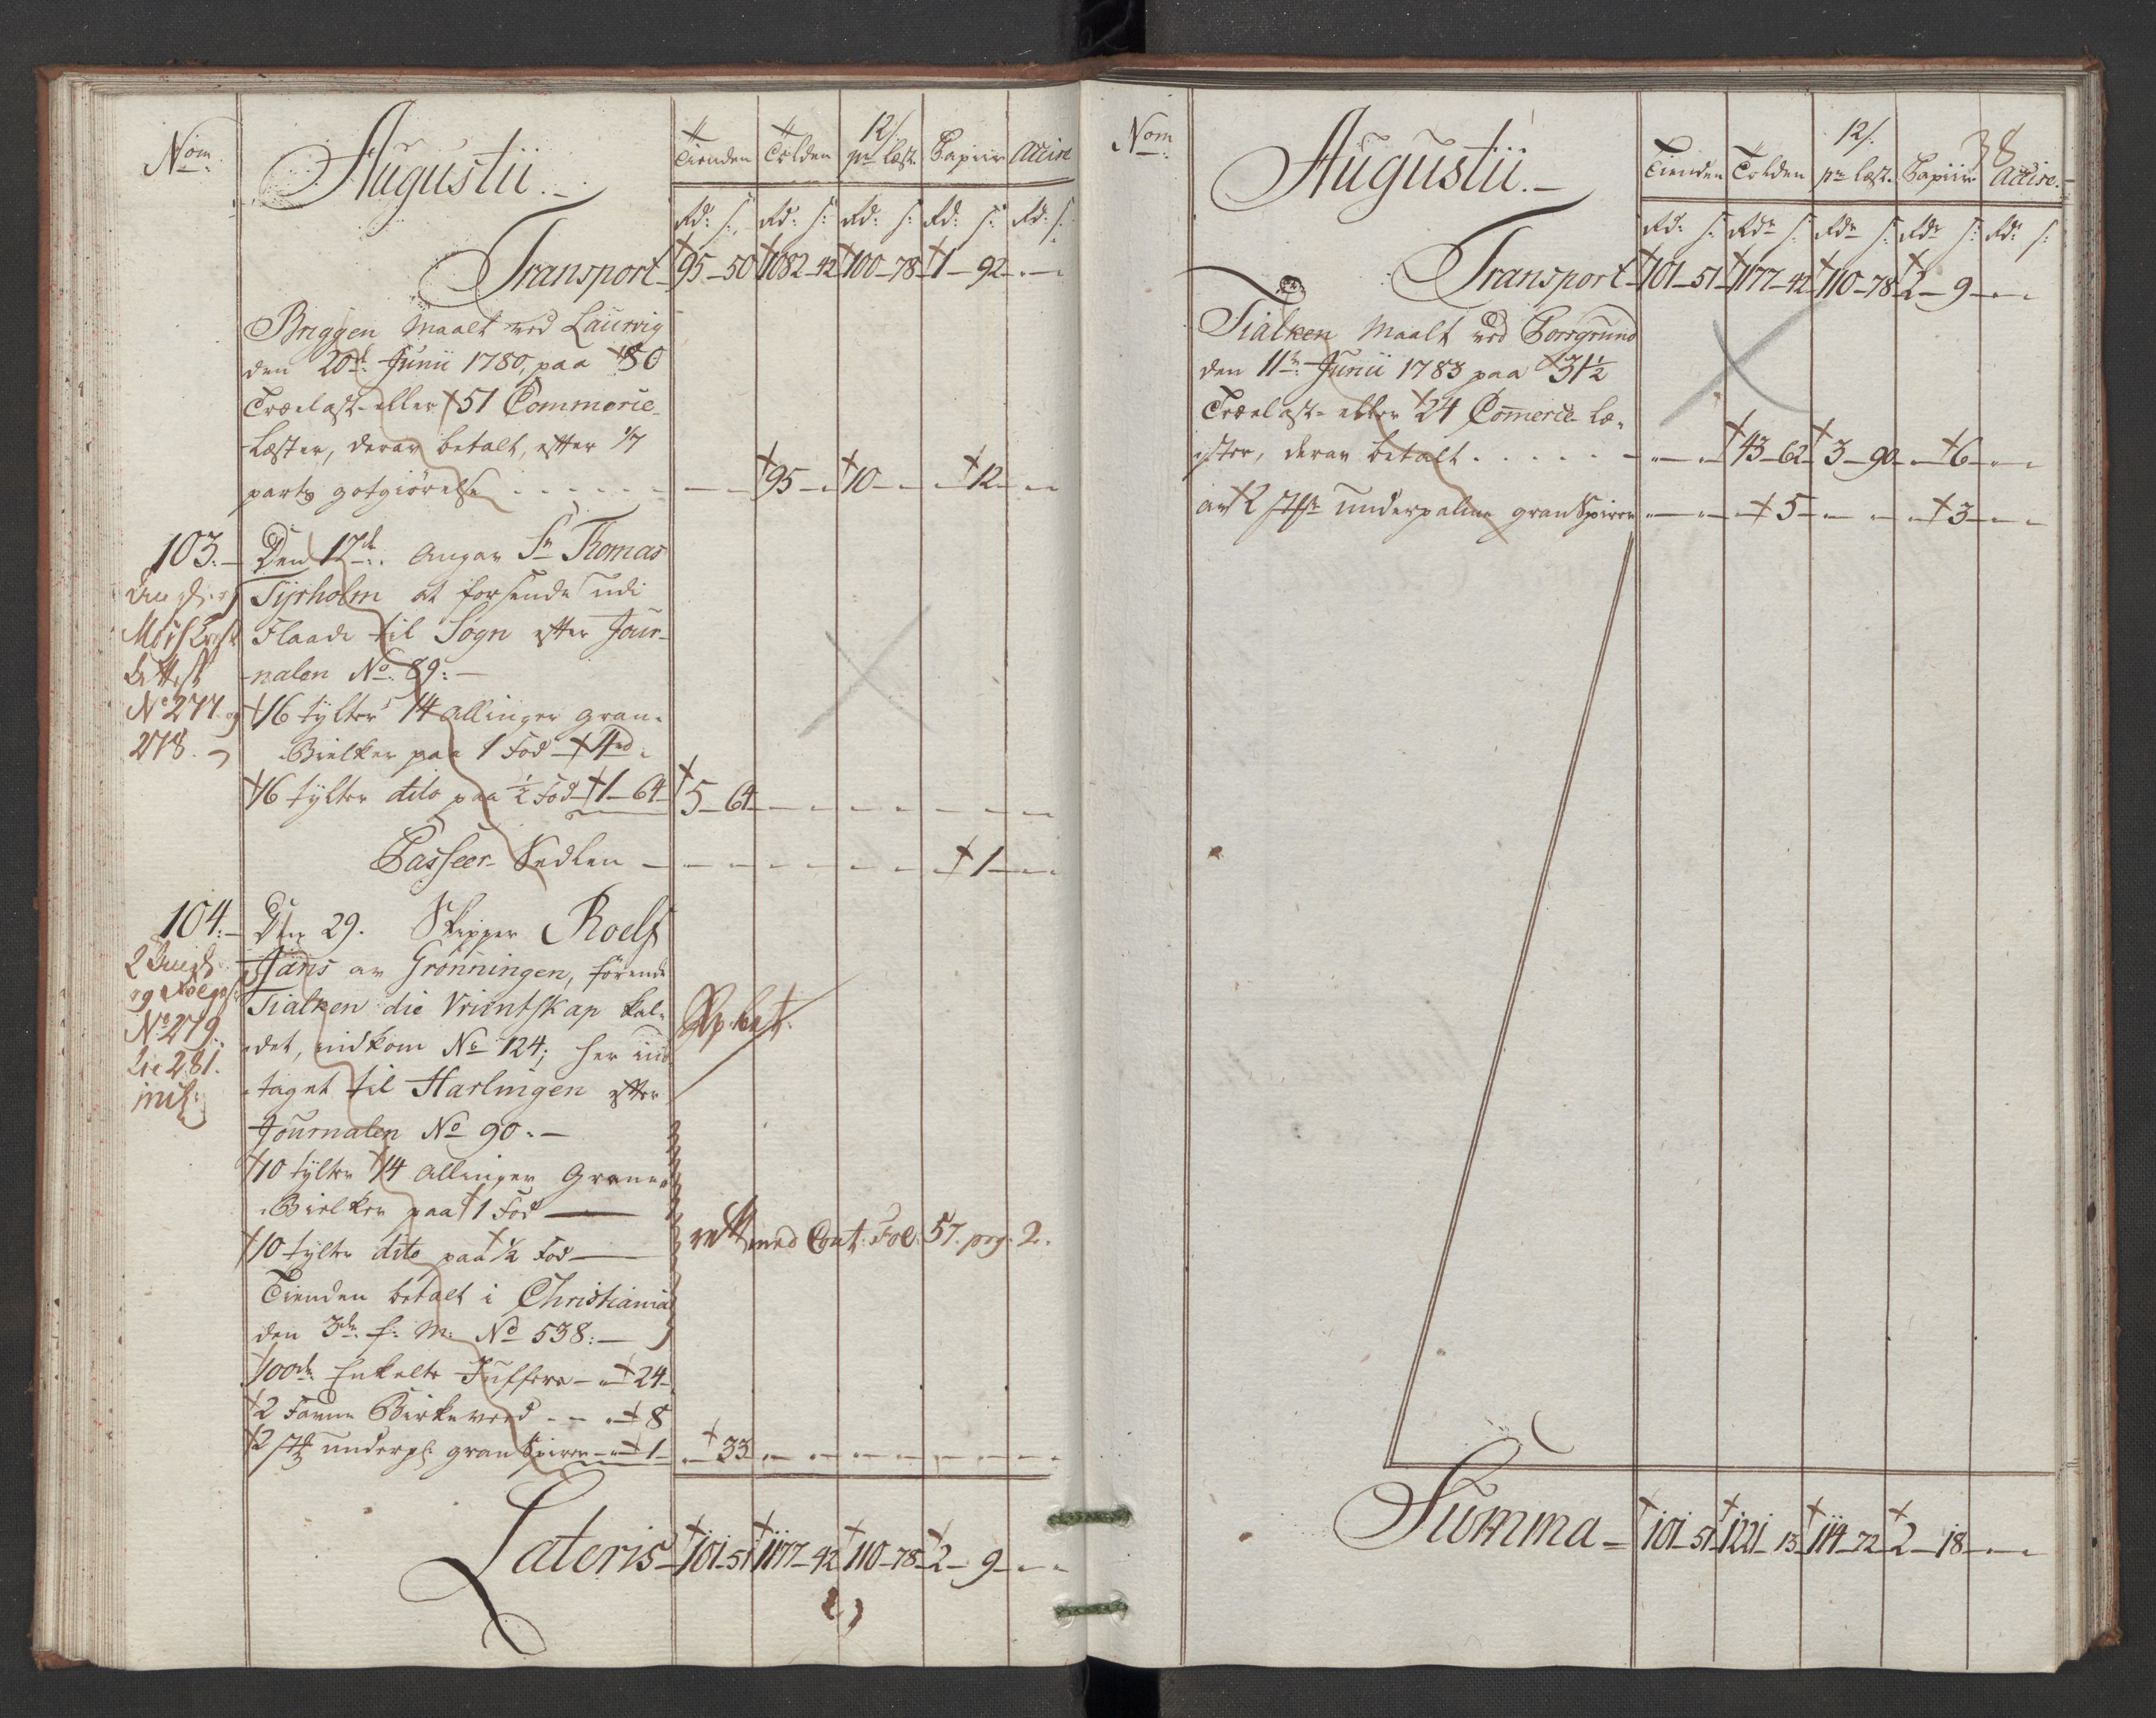 Nom.
Augustii.
Tienden Tolden 12/. pr læst. Papiir Accise
Rd: s: Rd: s: Rd: s: Rd: s: Rd: s:
Transport 95-50 1082-42 100-78 1-92
Briggen Maalt ved Laurvig
den 20d: Junii 1780, paa 80
Trælast eller 51 Commerce-
Læster, derav betalt, efter 1/7
parts gotgiörelse . . . . . 95 10 12
103. Den 17de. Angav Sr Thomas
Tÿrholm at forsende udi
Flaade til Sogn efter Jour-
nalen No. 89:
16 tÿlter 14 Allinger gran-
Bielker paa 1 Fod 4rd
16 tÿlter dito paa ½ Fod 1-64 5-64
Passeer-Sedlen 1
No 277 og
278.
104. Den 29. Skipper Roelf
Jans av Grønningen, førende
Tialken die Vrientskap kal-
det, indkom No 124; her ind
taget til Harlingen efter
Journalen No 90.
10 tÿlter 14 Allinger Grane
Bielker paa 1 Fod
10 tÿlter dito paa ½ Fod
Tienden betalt i Christiania
den 3de f: M: No 538:
100de Enkelte Juffere 24
2 Favne Birkeveed 8
2 st. underpl: gran Spirer 1 33
No 279.
281.
rett med Cont: Fol: 57. pag. 2.
Lateris 101-51 1177-42 110-78 2-9
Nom
Augustii.
38
Tienden Tolden 12/. pr læst. Papiir Accise.
Rd: s: Rdr s: Rdr s: Rdr s: Rdr s:
Transport 101-51 1177-42 110-78 2-9
Tialken Maalt ved Porsgrund
den 11te Junii 1783 paa 31½
Trælast- eller 24 Comerce Læ-
ster, derav betalt . . . . . 43-62 3-90 6
av 2 st. underpalme gran Spirer 5 3
Summa 101-51 1221-13 114-72 2-18